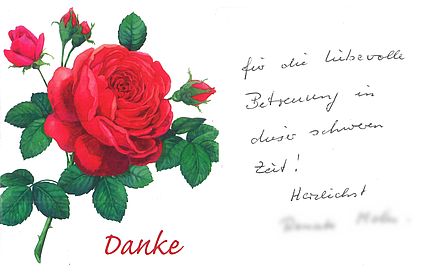 Danke
für die liebevolle
Betreuung in
dieser schweren
Zeit!
Herzlichst